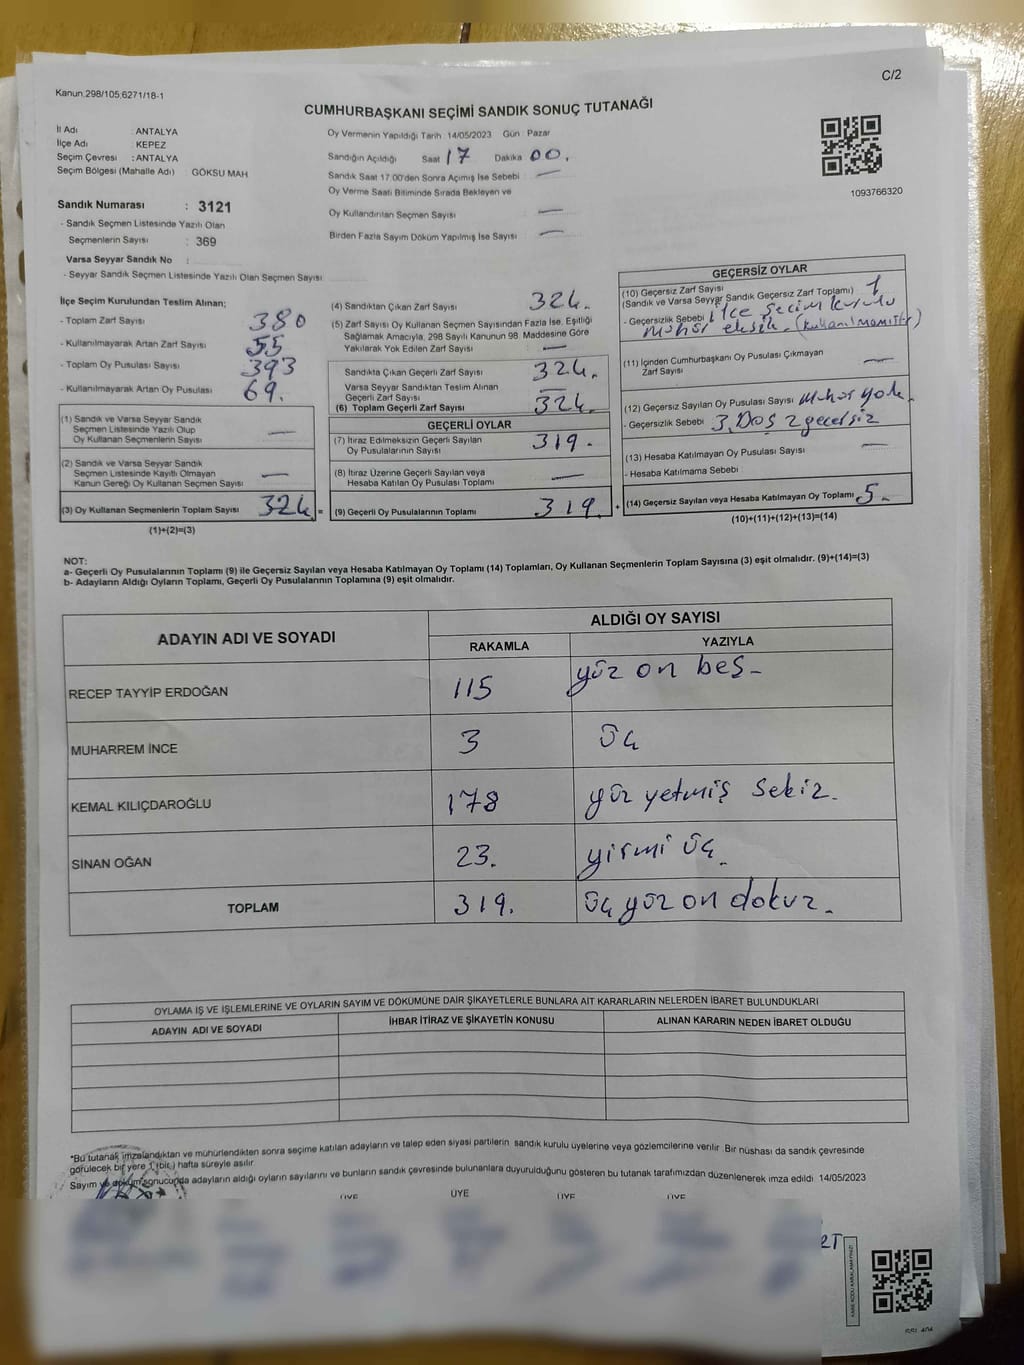 C/2
Kanun.298/105,6271/18-1
CUMHURBAŞKANI SEÇİMİ SANDIK SONUÇ TUTANAĞI
İl Adı : ANTALYA
İlçe Adı : KEPEZ
Seçim Çevresi : ANTALYA
Seçim Bölgesi (Mahalle Adı) GÖKSU MAH
Oy Vermenin Yapıldığı Tarih 14/05/2023 Gün Pazar
Sandığın Açıldığı Saat 17 Dakika 00.
Sandık Saat 17.00'den Sonra Açımış İse Sebebi : —
Oy Verme Saati Bitiminde Sırada Bekleyen ve
Oy Kullandırılan Seçmen Sayısı —
Birden Fazla Sayım Döküm Yapılmış İse Sayısı —
1093766320
Sandık Numarası : 3121
- Sandık Seçmen Listesinde Yazılı Olan
Seçmenlerin Sayısı : 369
Varsa Seyyar Sandık No :
- Seyyar Sandık Seçmen Listesinde Yazılı Olan Seçmen Sayısı
İlçe Seçim Kurulundan Teslim Alınan;
- Toplam Zarf Sayısı : 380
- Kullanılmayarak Artan Zarf Sayısı : 55
- Toplam Oy Pusulası Sayısı : 393
- Kullanılmayarak Artan Oy Pusulası : 69.
(1) Sandık ve Varsa Seyyar Sandık
Seçmen Listesinde Yazılı Olup
Oy Kullanan Seçmenlerin Sayısı —
(2) Sandık ve Varsa Seyyar Sandık
Seçmen Listesinde Kayıtlı Olmayan
Kanun Gereği Oy Kullanan Seçmen Sayısı —
(3) Oy Kullanan Seçmenlerin Toplam Sayısı 324. =
(1)+(2)=(3)
(4) Sandıktan Çıkan Zarf Sayısı 324.
(5) Zarf Sayısı Oy Kullanan Seçmen Sayısından Fazla İse, Eşitliği
Sağlamak Amacıyla, 298 Sayılı Kanunun 98. Maddesine Göre
Yakılarak Yok Edilen Zarf Sayısı —
Sandıkta Çıkan Geçerli Zarf Sayısı 324.
Varsa Seyyar Sandıktan Teslim Alınan
Geçerli Zarf Sayısı —
(6) Toplam Geçerli Zarf Sayısı 324.
GEÇERLİ OYLAR
(7) İtiraz Edilmeksizin Geçerli Sayılan
Oy Pusulalarının Sayısı 319.
(8) İtiraz Üzerine Geçerli Sayılan veya
Hesaba Katılan Oy Pusulası Toplamı —
(9) Geçerli Oy Pusulalarının Toplamı 319. +
GEÇERSİZ OYLAR
(10) Geçersiz Zarf Sayısı 1
(Sandık ve Varsa Seyyar Sandık Geçersiz Zarf Toplamı)
- Geçersizlik Sebebi : İlçe seçim kurulu
mühör eksik. (kullanılmamıştır)
(11) İçinden Cumhurbaşkanı Oy Pusulası Çıkmayan
Zarf Sayısı —
(12) Geçersiz Sayılan Oy Pusulası Sayısı mühör yok.
- Geçersizlik Sebebi : 3. Boş 2 geçersiz
(13) Hesaba Katılmayan Oy Pusulası Sayısı —
- Hesaba Katılmama Sebebi :
(14) Geçersiz Sayılan veya Hesaba Katılmayan Oy Toplamı 5.
(10)+(11)+(12)+(13)=(14)
NOT:
a- Geçerli Oy Pusulalarının Toplamı (9) ile Geçersiz Sayılan veya Hesaba Katılmayan Oy Toplamı (14) Toplamları, Oy Kullanan Seçmenlerin Toplam Sayısına (3) eşit olmalıdır. (9)+(14)=(3)
b- Adayların Aldığı Oyların Toplamı, Geçerli Oy Pusulalarının Toplamına (9) eşit olmalıdır.
ADAYIN ADI VE SOYADI ALDIĞI OY SAYISI
RAKAMLA YAZIYLA
RECEP TAYYİP ERDOĞAN 115 yüz on beş.
MUHARREM İNCE 3 üç
KEMAL KILIÇDAROĞLU 178 yüz yetmiş sekiz.
SİNAN OĞAN 23. yirmi üç.
TOPLAM 319. üç yüz on dokuz.
OYLAMA İŞ VE İŞLEMLERİNE VE OYLARIN SAYIM VE DÖKÜMÜNE DAİR ŞİKAYETLERLE BUNLARA AİT KARARLARIN NELERDEN İBARET BULUNDUKLARI
ADAYIN ADI VE SOYADI İHBAR İTİRAZ VE ŞİKAYETİN KONUSU ALINAN KARARIN NEDEN İBARET OLDUĞU
*Bu tutanak imzalandıktan ve mühürlendikten sonra seçime katılan adayların ve talep eden siyasi partilerin sandık kurulu üyelerine veya gözlemcilerine verilir. Bir nüshası da sandık çevresinde
görülecek bir yere 1 (bir) hafta süreyle asılır
Sayım ve döküm sonucunda adayların aldığı oyların sayılarını ve bunların sandık çevresinde bulunanlara duyurulduğunu gösteren bu tutanak tarafımızdan düzenlenerek imza edildi. 14/05/2023
ÜYE ÜYE ÜYE ÜYE